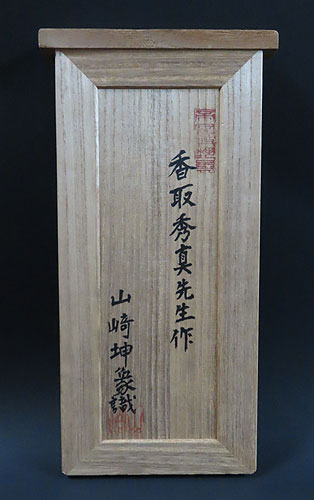 香取秀真先生作
山崎坤象識